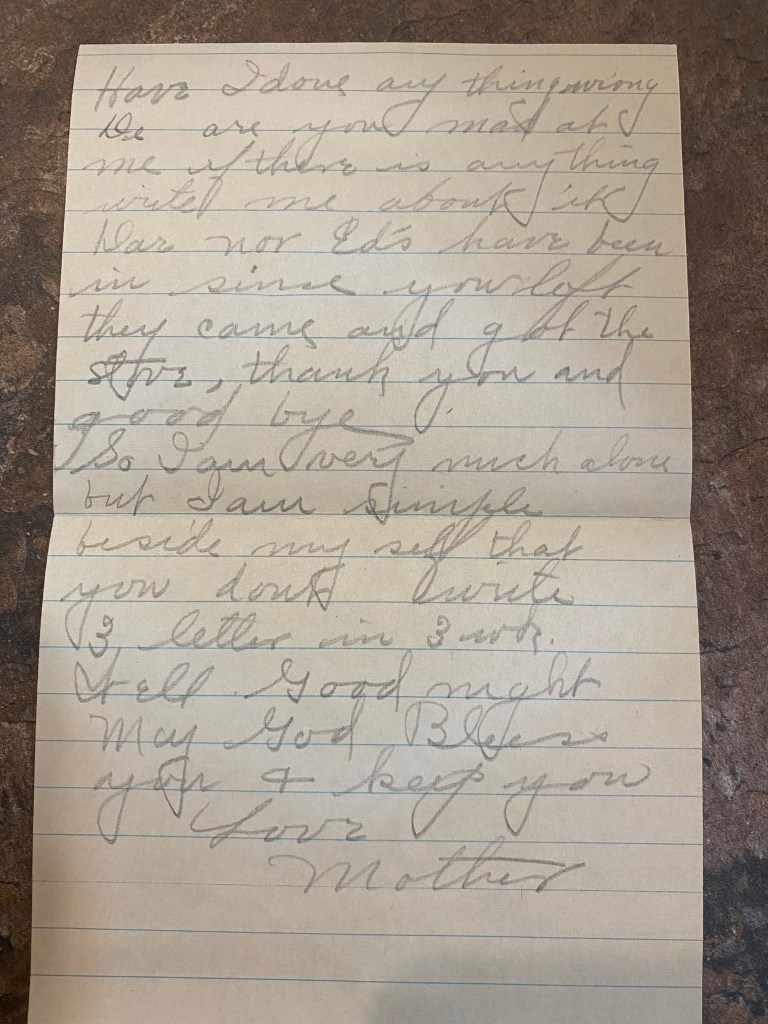 Have I done any thing wrong
De are you mad at
me if there is any thing
write me about it
Dar nor Ed's have been
in since you left
they came and got the
stove, thank you and
good bye.
So I am very much alone
but I am simple
beside my self that
you dont write
3 letter in 3 wks.
Well Good night
May God Bless
you & keep you
Love
Mother